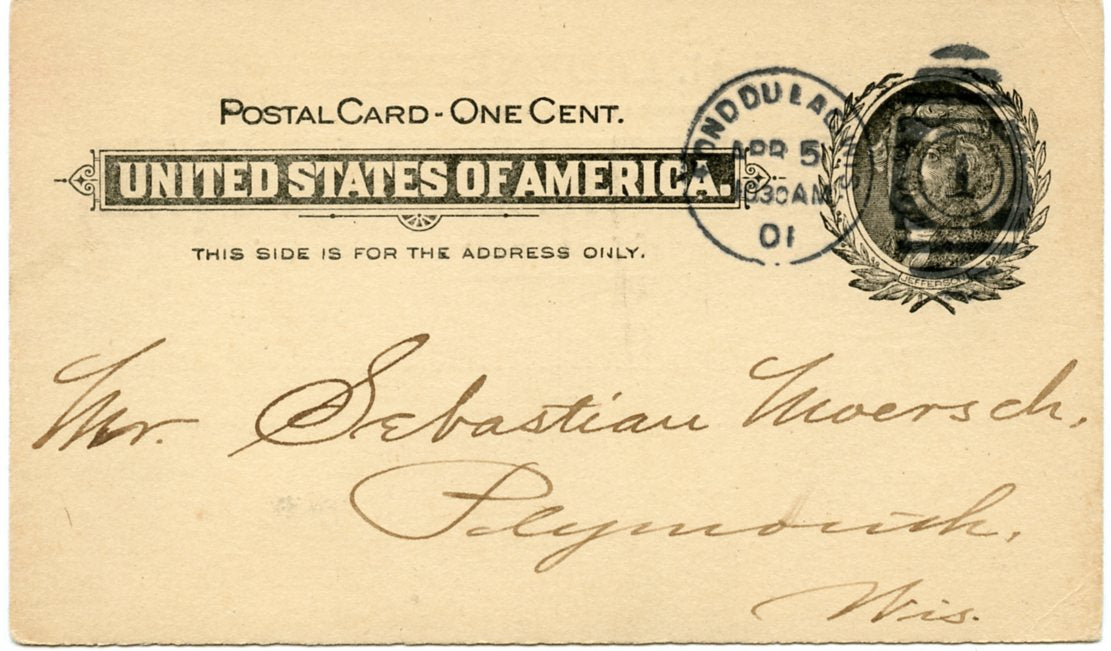 POSTAL CARD - ONE CENT.
UNITED STATES OF AMERICA.
THIS SIDE IS FOR THE ADDRESS ONLY.
FOND DU LAC
WIS
APR 5
1030 AM
01
1
JEFFERSON
Mr. Sebastian Moersch,
Plymouth,
Wis.